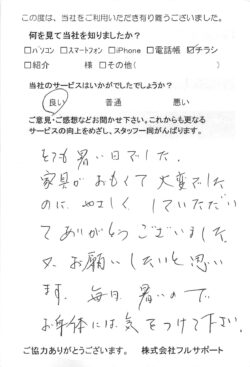 この度は、当社をご利用いただき有り難うございました。
何を見て当社を知りましたか?
□パソコン □スマートフォン □iPhone □電話帳 ☑チラシ
□紹介 様 □その他( )
当社のサービスはいかがでしたでしょうか?
良い 普通 悪い
ご意見・ご感想などお聞かせ下さい。これからも更なる
サービスの向上をめざし、スタッフ一同がんばります。
とても暑い日でした。
家具がおもくて大変でした
のに やさしく していただい
てありがとうございました
又、お願いしたいと思い
ます。毎日 暑いので
お身体には気をつけて下さい。
ご協力ありがとうございます。 株式会社フルサポート